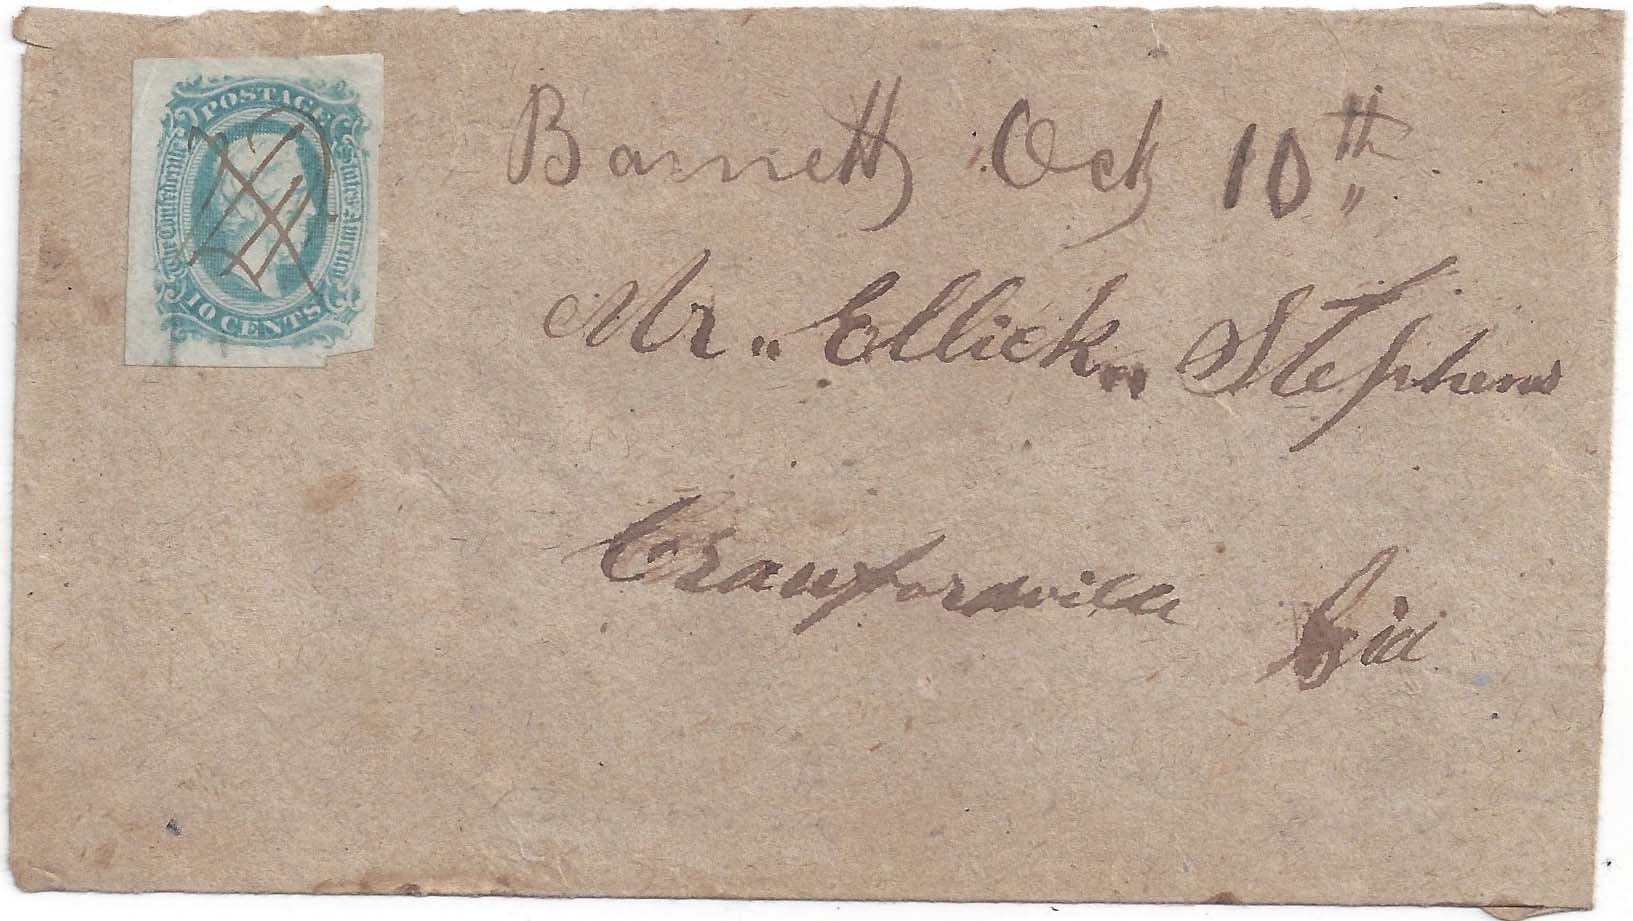 POSTAGE
The Confederate States of America
10 CENTS
Barnett Oct 10th
Mr. Ellick Stephens
Crawfordville Gia